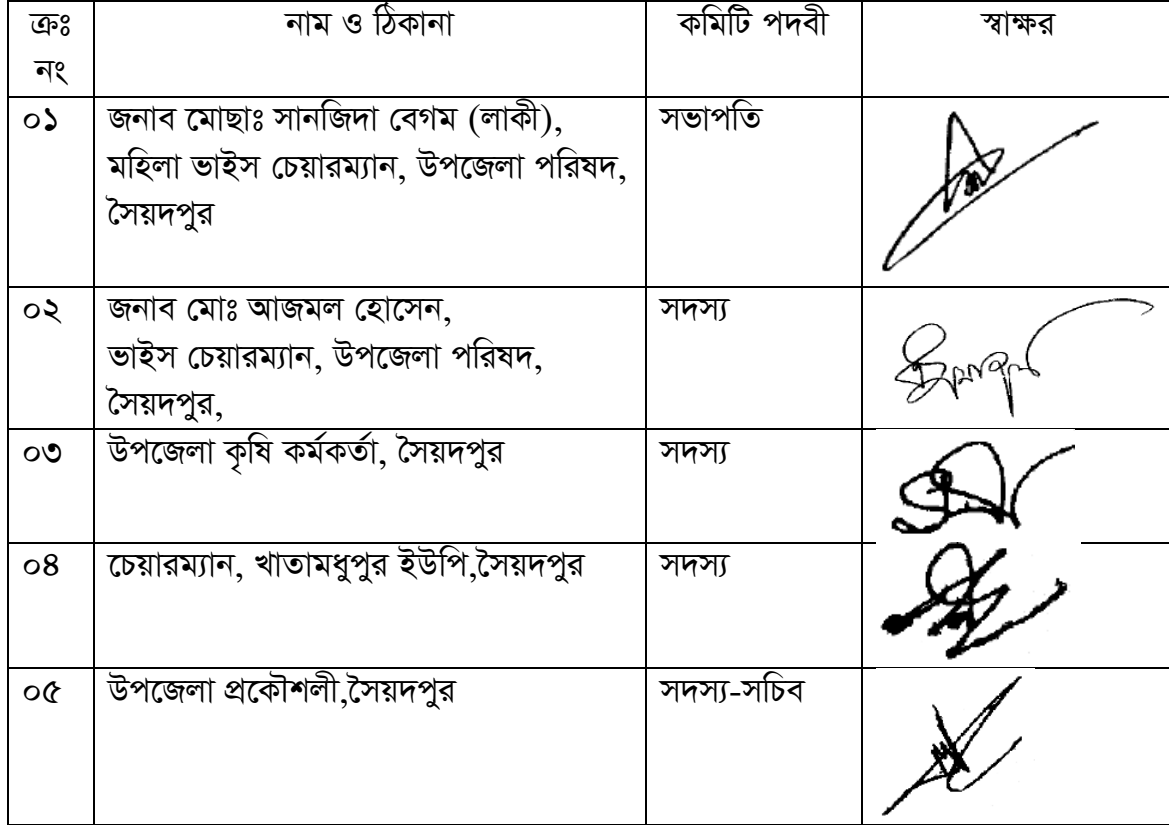 ক্রঃ নাম ও ঠিকানা কমিটি পদবী স্বাক্ষর
নং
০১ জনাব মোছাঃ সানজিদা বেগম (লাকী), সভাপতি
মহিলা ভাইস চেয়ারম্যান, উপজেলা পরিষদ,
সৈয়দপুর
০২ জনাব মোঃ আজমল হোসেন, সদস্য
ভাইস চেয়ারম্যান, উপজেলা পরিষদ,
সৈয়দপুর,
০৩ উপজেলা কৃষি কর্মকর্তা, সৈয়দপুর সদস্য
০৪ চেয়ারম্যান, খাতামধুপুর ইউপি,সৈয়দপুর সদস্য
০৫ উপজেলা প্রকৌশলী,সৈয়দপুর সদস্য-সচিব